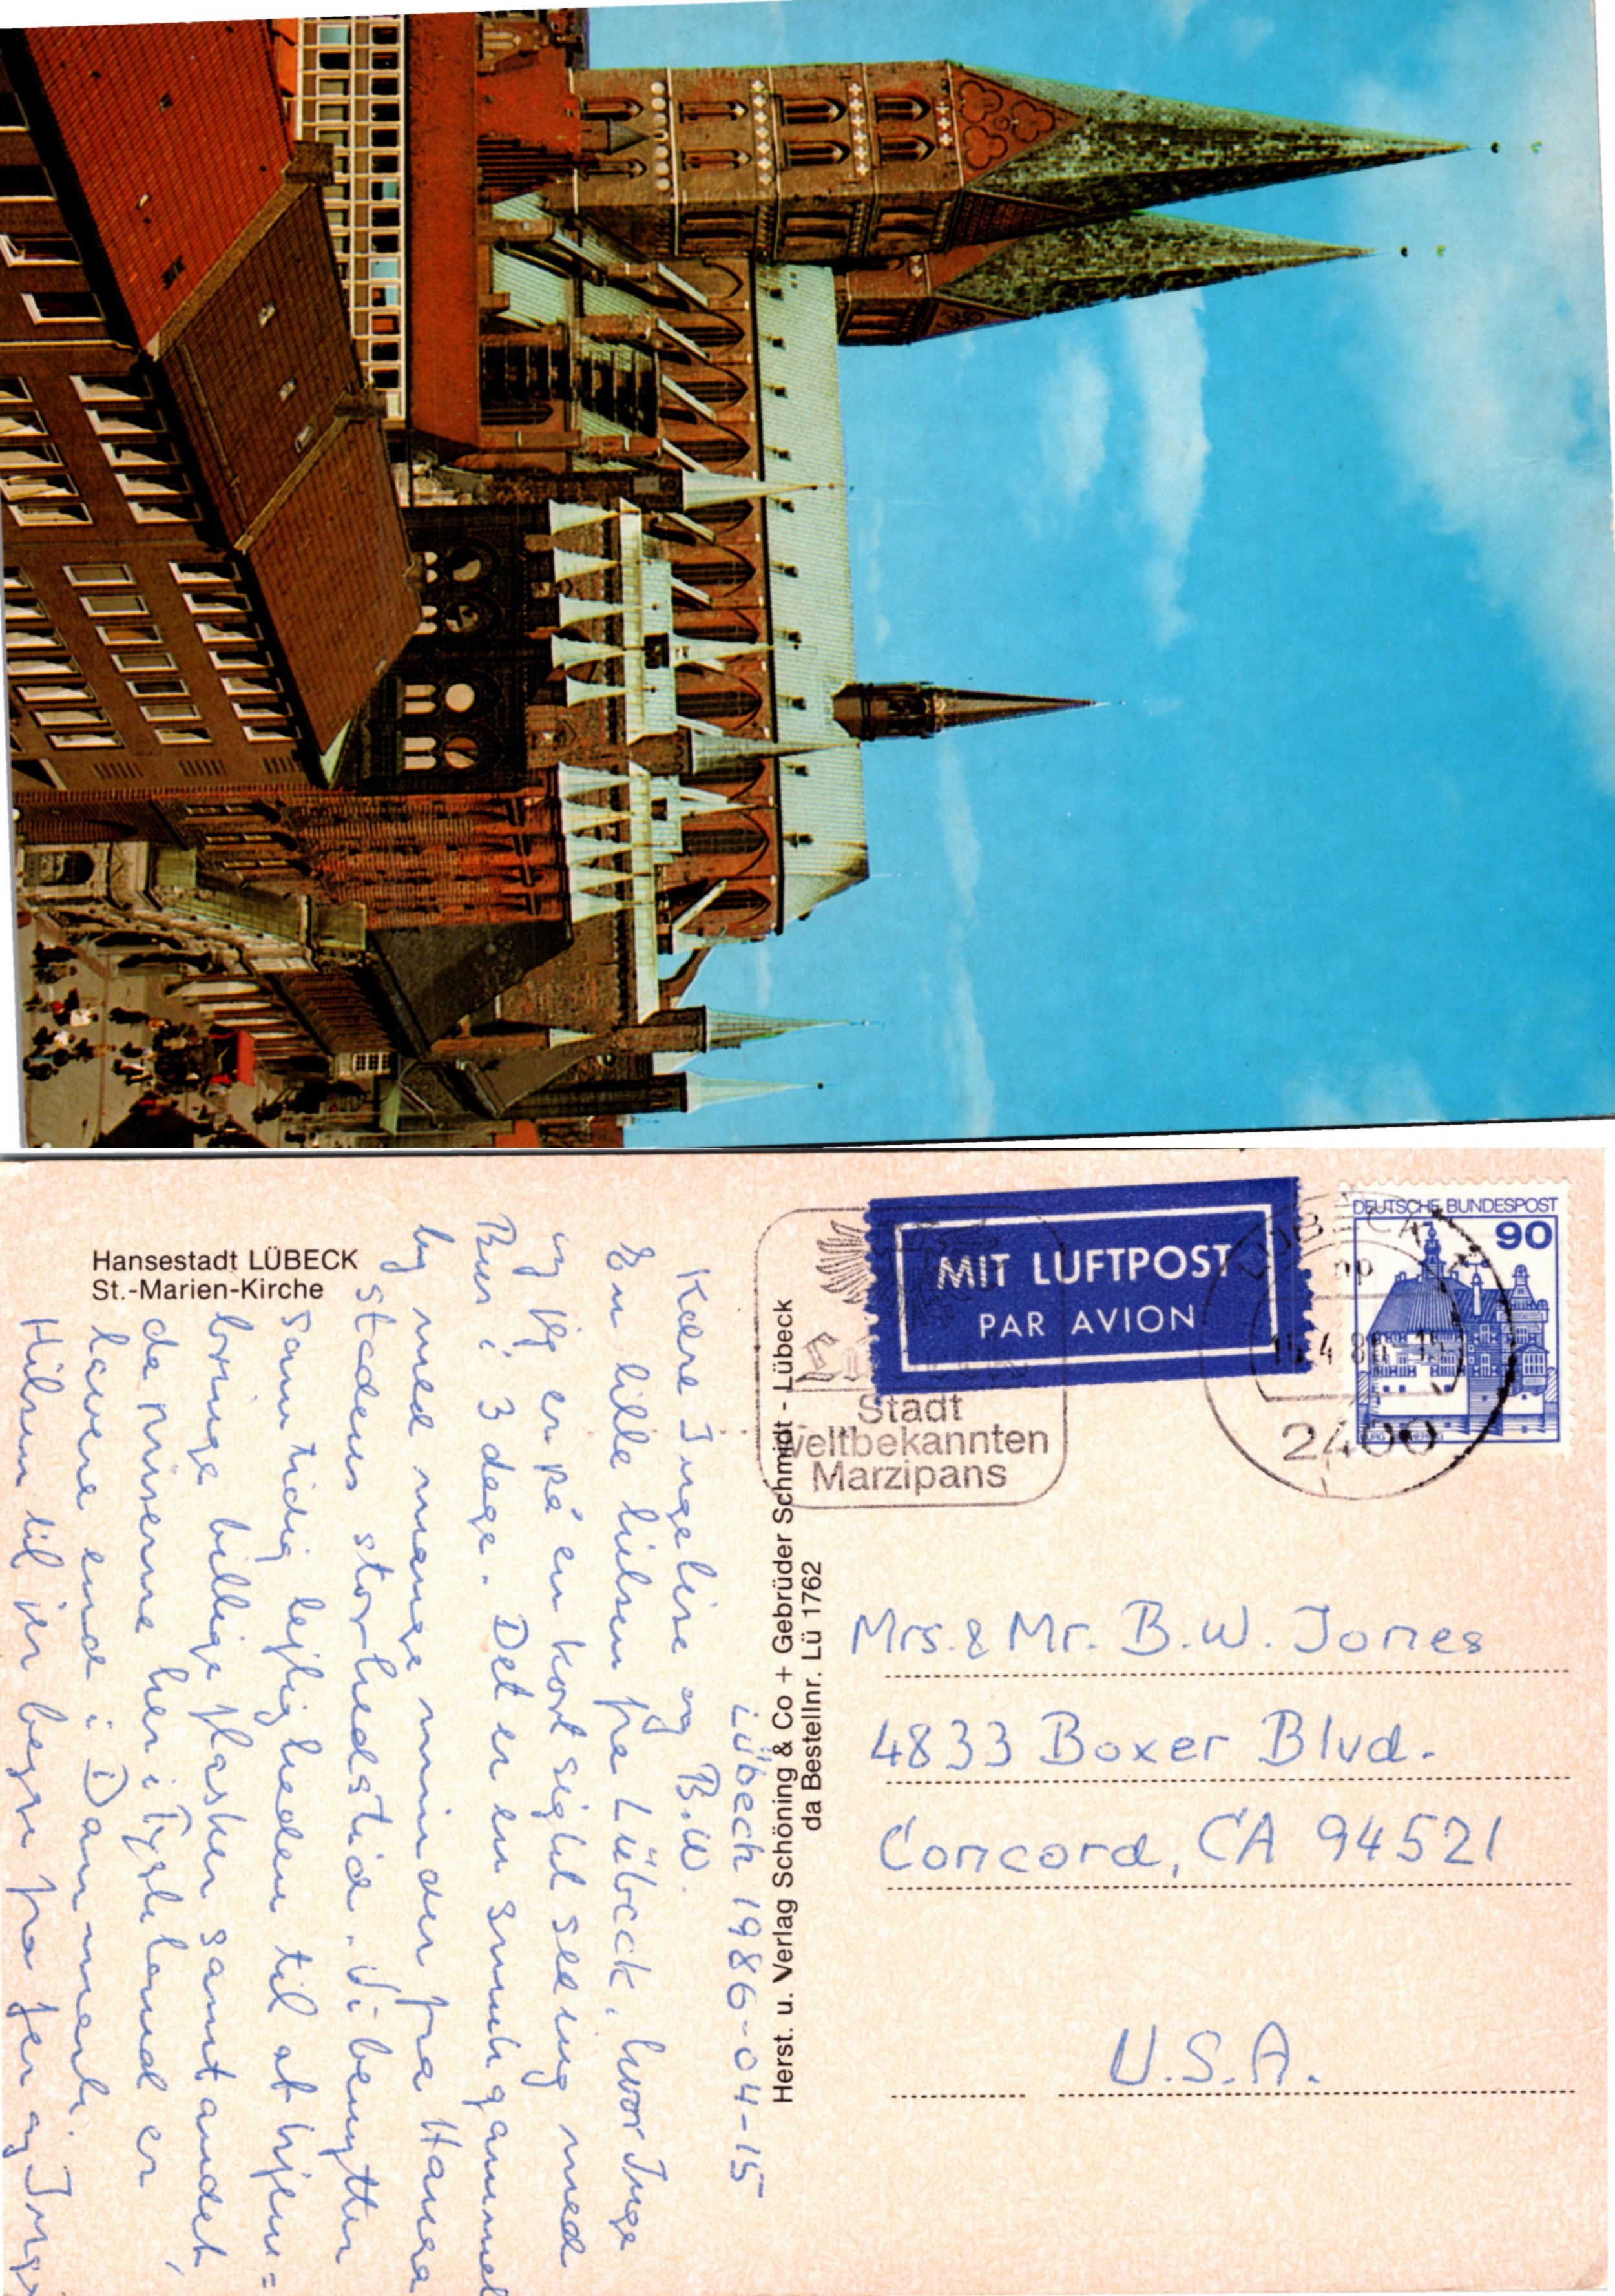 Hansestadt LÜBECK
St.-Marien-Kirche
Lübeck 1986-04-15
Kære Ingelise og B.W.
En lille hilsen fra Lübeck, hvor Inge
og jeg er på en kort sigtseeing med
Bus i 3 dage. Det er en smuk gammel
by med mange minder fra Hansa
stadens storhedstid. Vi benytter
samtidig lejligheden til at hjem=
bringe billige flasker samt andet,
da priserne her i Tyskland er
lavere end i Danmark.
Hilsen til jer begge fra
Herst. u. Verlag Schöning & Co + Gebrüder Schmidt - Lübeck
da Bestellnr. Lü 1762
MIT LUFTPOST
PAR AVION
Stadt
weltbekannten
Marzipans
DEUTSCHE BUNDESPOST
90
2400
Mrs. & Mr. B.W. Jones
4833 Boxer Blvd.
Concord, CA 94521
U.S.A.